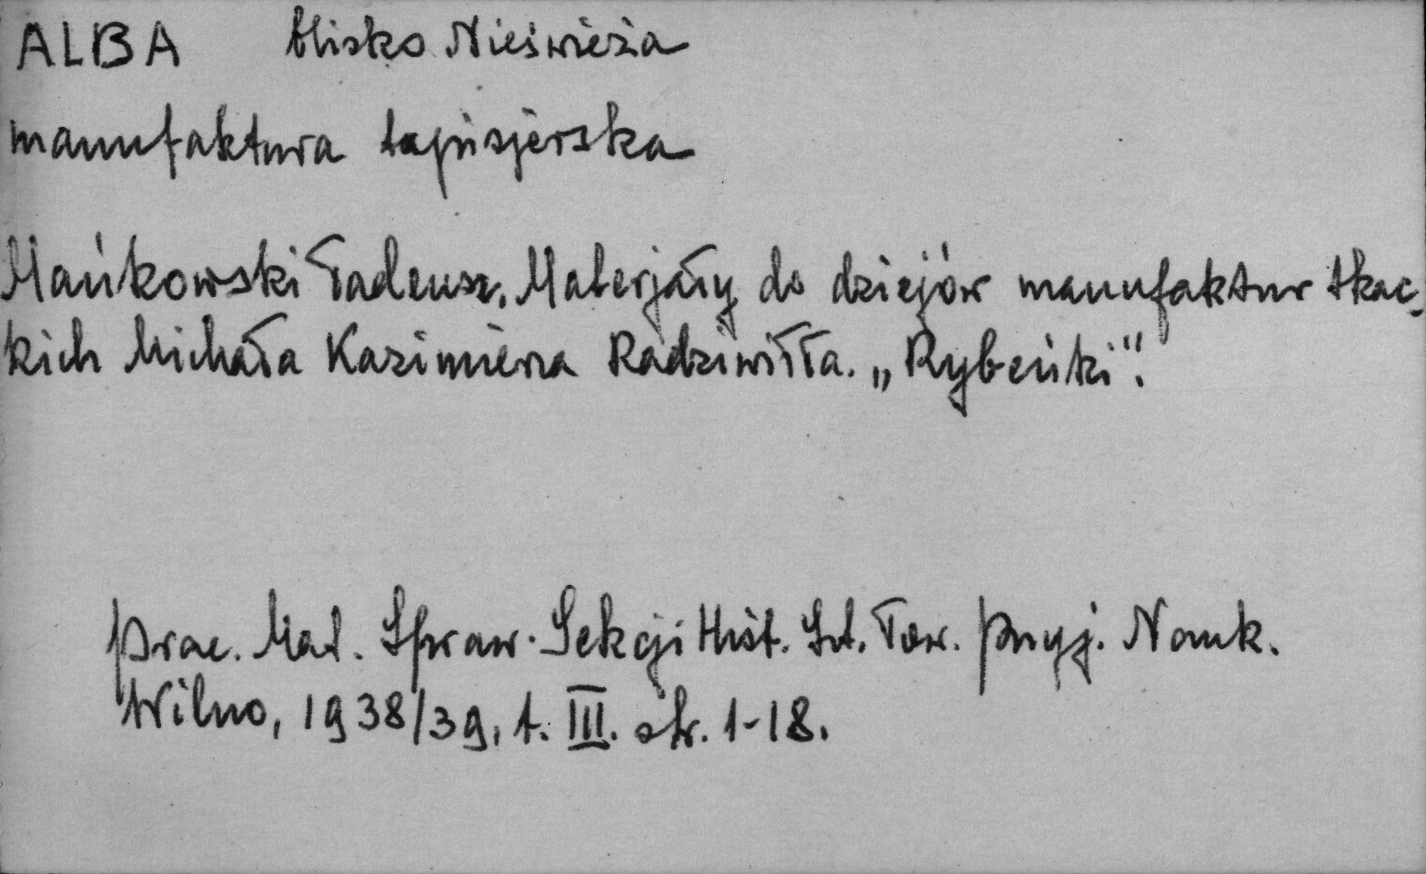 ALBA blisko Nieświeża
manufaktura tapisjerska
Mańkowski Tadeusz, Materjały do dziejów manufaktur tkac-
kich Michała Kazimierza Radziwiłła. „Rybeńki".
Prac. Mat. Spraw. Sekcji Hist. Szt. Tow. Przyj. Nauk.
Wilno, 1938/39, t. III. str. 1-18.